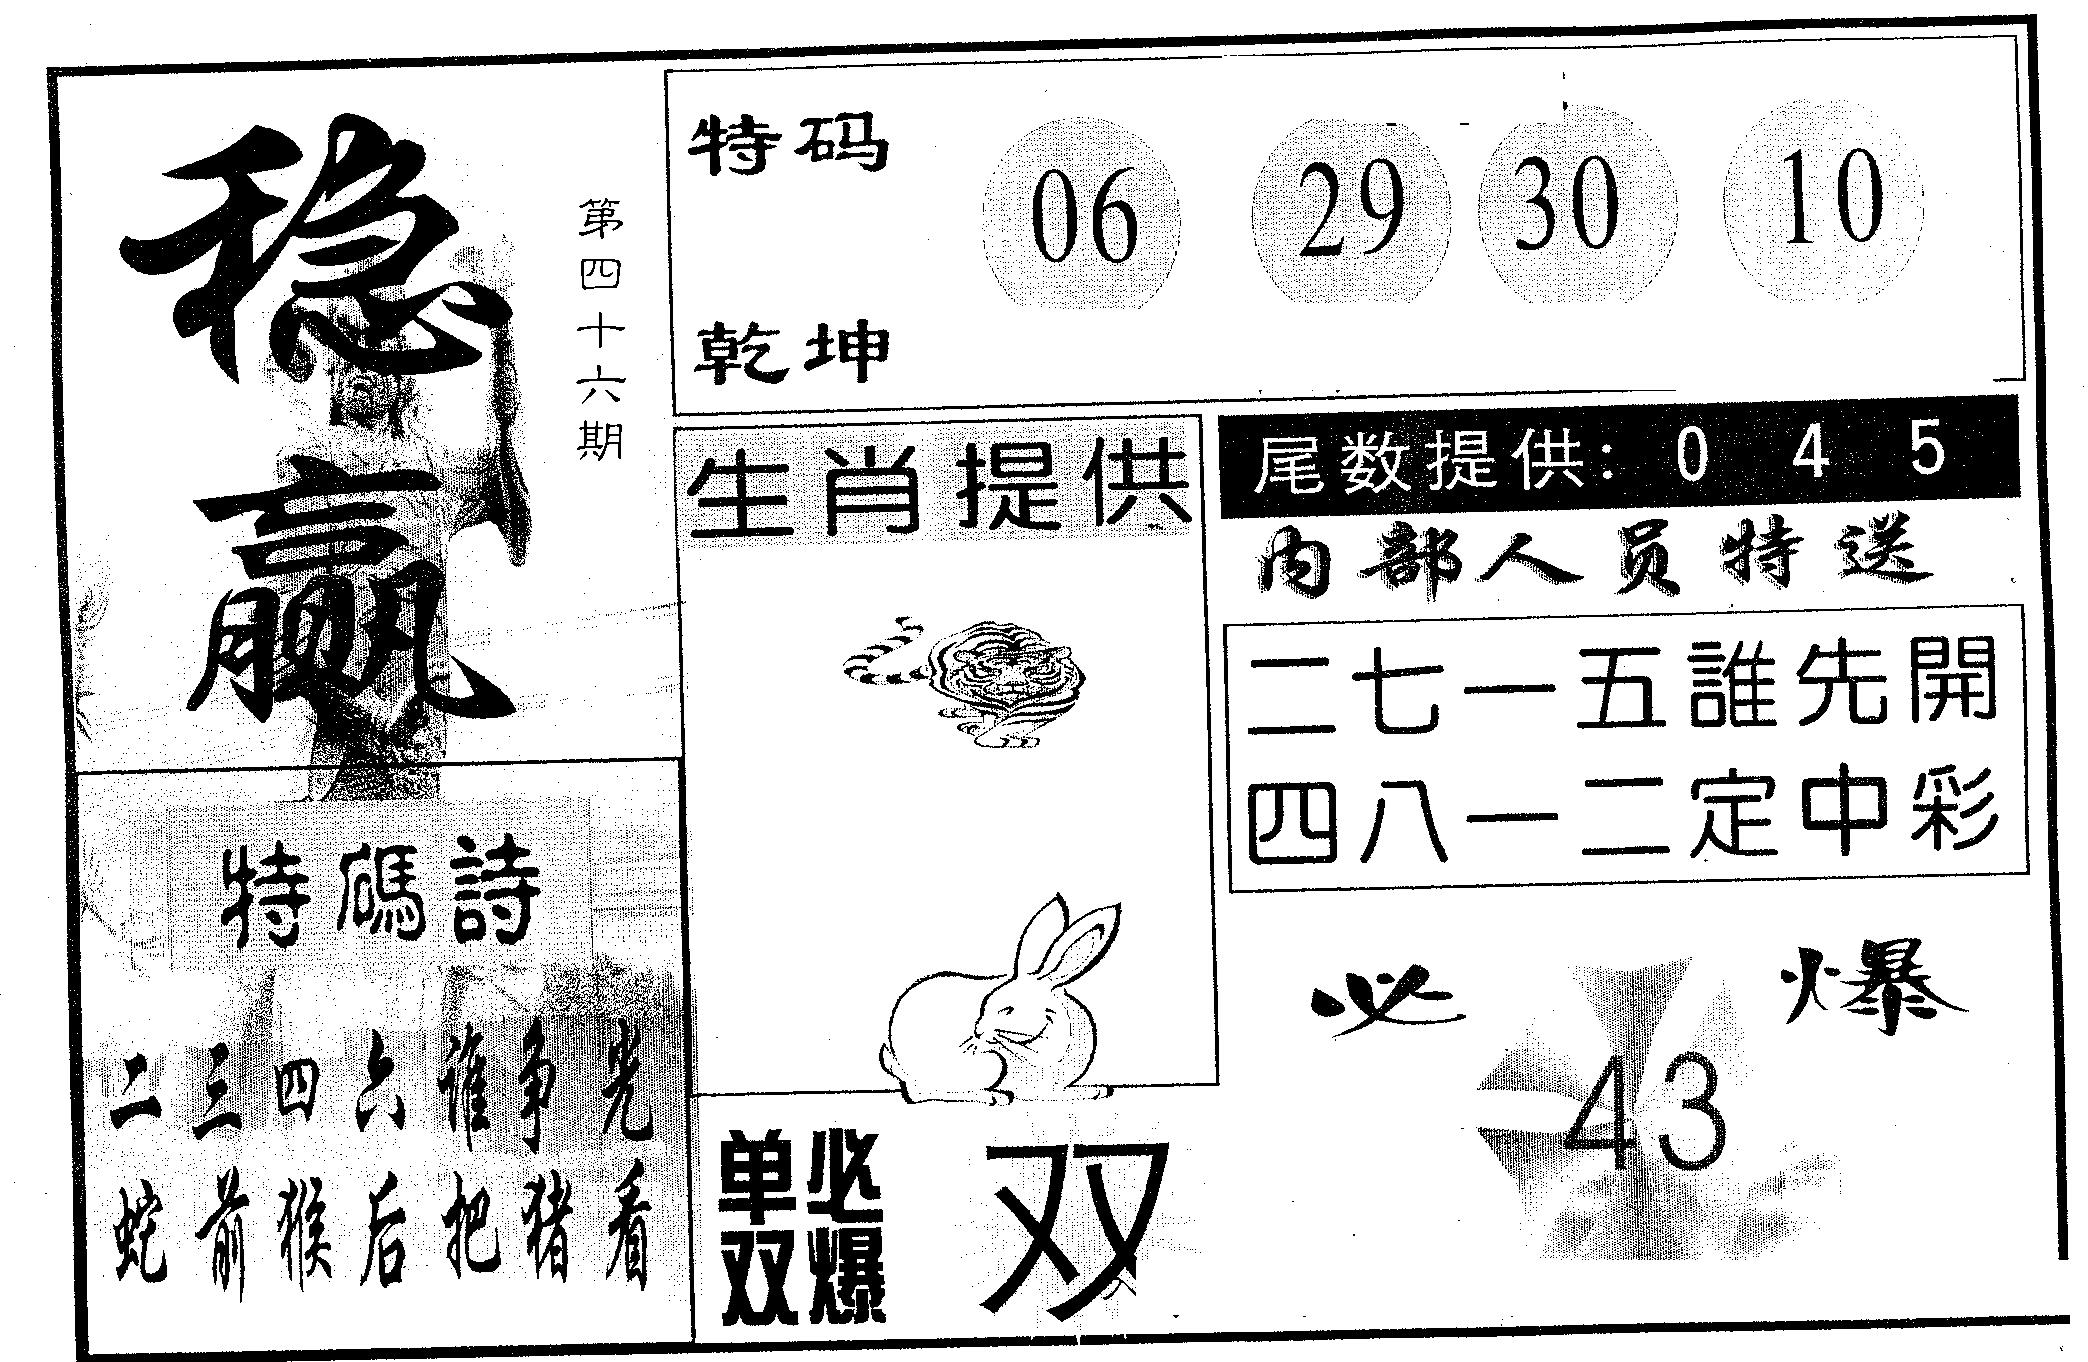 稳赢
第四十六期
特码
06 29 30 10
乾坤
生肖提供
尾数提供: 0 4 5
内部人员特送
二七一五誰先開
四八一二定中彩
特碼詩
二三四六谁争先
蛇前猴后把猪看
单双必爆
双
必爆
43